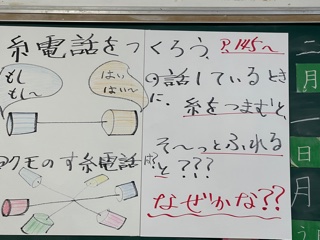 糸電話をつくろう。P.145〜
もし
もし〜
はい
はい〜
クモのす糸電話は?
◎話しているとき
に、糸をつまむと、
そ〜っとふれる
と???
なぜかな??
二
月
一
日
月